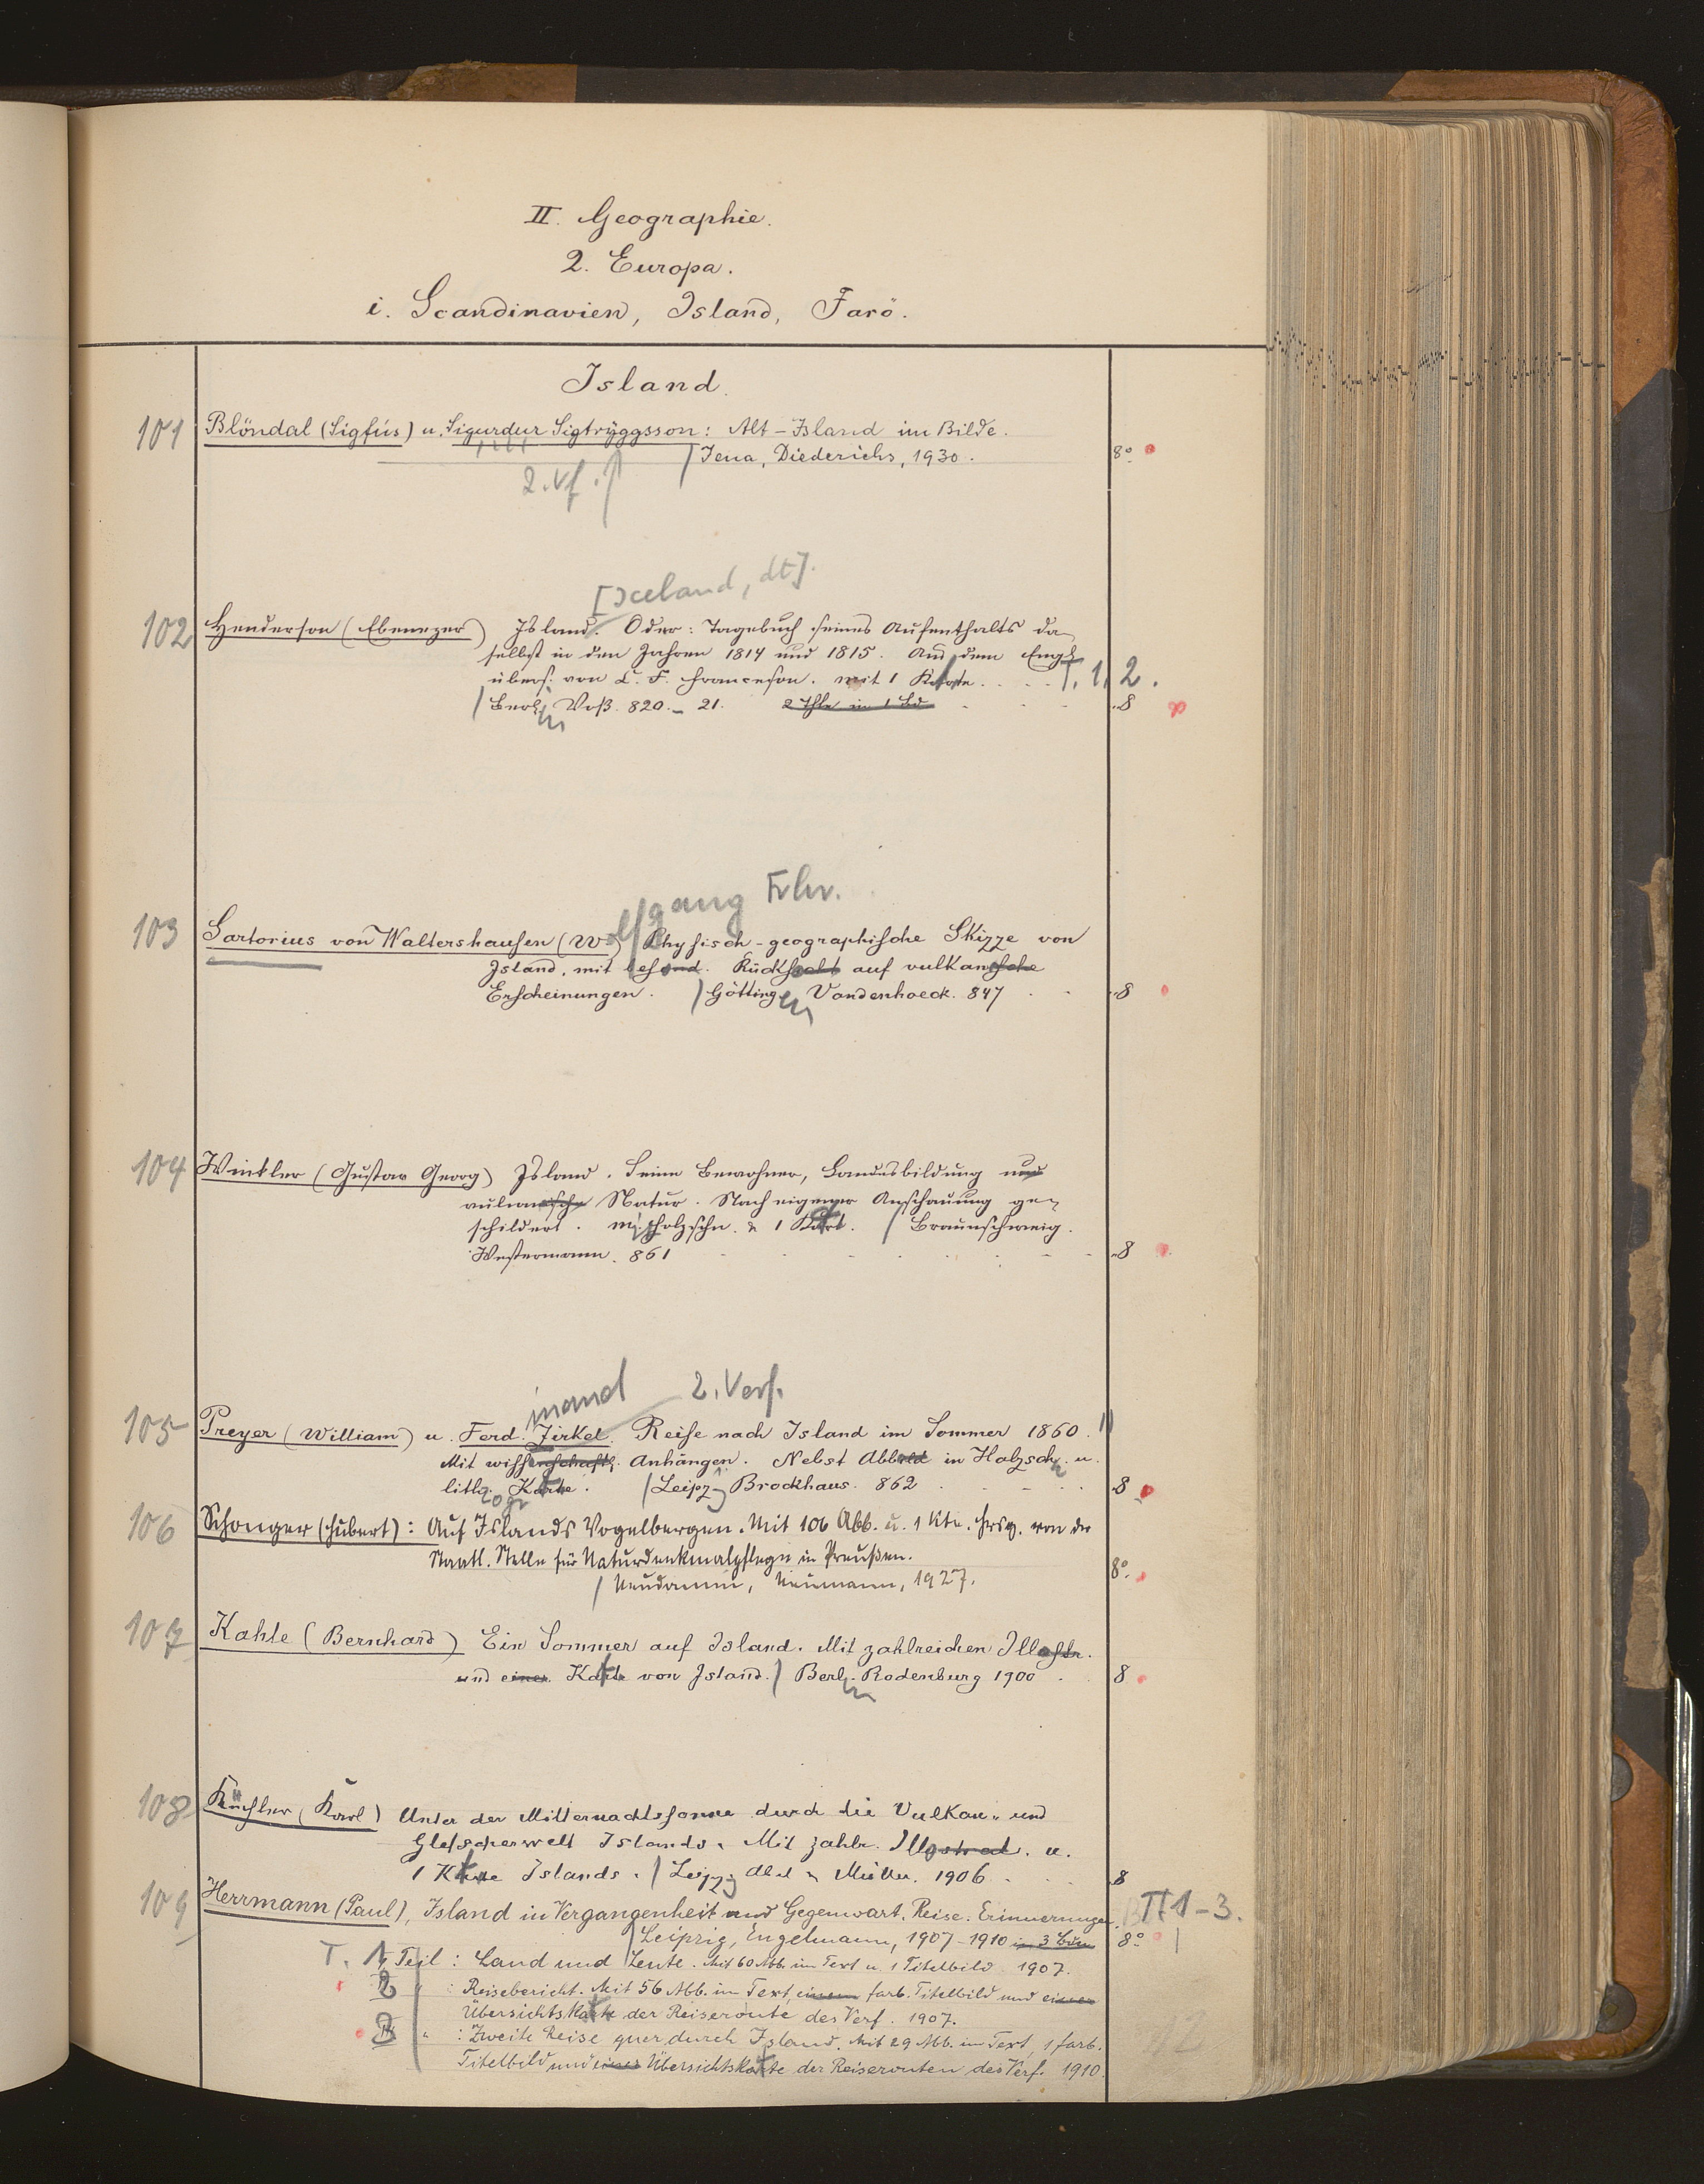 II. Geographie.
2. Europa.
i. Scandinavien, Island, Farö.
Island.
101 Blöndal (Sigfús) u. Sigurdur Sigtryggsson: Alt-Island im Bilde.
/ Jena, Diederichs, 1930. 8º
2. Vf.
[Iceland, dt].
102 Henderson (Ebenezer) Island. Oder: Tagebuch seines Aufenthalts da
selbst in den Jahren 1814 und 1815. Aus dem Engl.
übers. von C. F. Franceson. mit 1 Karte. T. 1, 2.
/ Berl in Voß. 820.-21. 2 Thle in 1 Bd 8
olfgang Frhr.
103 Sartorius von Waltershausen (W.) Physisch-geographische Skizze von
Island, mit besond. Rücksicht auf vulkanische
Erscheinungen. / Götting en Vandenhoeck. 847 8
104 Winkler (Gustav Georg) Island. Seine Bewohner, Landesbildung und
vulkanische Natur. Nach eigener Anschauung ge-
schildert. Mit Holzschn. & 1 Kart. / Braunschweig.
Westermann. 861 8
inand 2. Verf.
105 Preyer (William) u. Ferd. Zirkel. Reise nach Island im Sommer 1860.
Mit wissenschaftl. Anhängen. Nebst Abbild in Holzschn. u.
lithogr. Karte. / Leipzig Brockhaus. 862 8
106 Schonger (Hubert): Auf Islands Vogelbergen. Mit 106 Abb. u. 1 Kte. Hrsg. von der
Staatl. Stelle für Naturdenkmalpflege in Preußen. 8º
/ Neudamm, Neumann, 1927.
107 Kahle (Bernhard) Ein Sommer auf Island. Mit zahlreichen Illustr.
und einer Karte von Island. / Berl in Bodenburg 1900 8
108 Küchler (Karl) Unter der Mitternachtssonne durch die Vulkan- und
Gletscherwelt Islands. Mit zahlr. Illustrat. u.
1 Karte Islands. / Leipzig Abel & Müller. 1906 8
109 Herrmann (Paul), Island in Vergangenheit und Gegenwart. Reise-Erinnerungen. T 1-3.
/ Leipzig, Engelmann, 1907-1910 in 3 Bden 8º
T. 1. Teil: Land und Leute. Mit 60 Abb. im Text u. 1 Titelbild 1907.
2 " : Reisebericht. Mit 56 Abb. im Text, einem farb. Titelbild und einer
Übersichtskarte der Reiseroute des Verf. 1907.
3 " : Zweite Reise quer durch Island. Mit 29 Abb. im Text, 1 farb.
Titelbild und einer Übersichtskarte der Reiserouten des Verf. 1910.